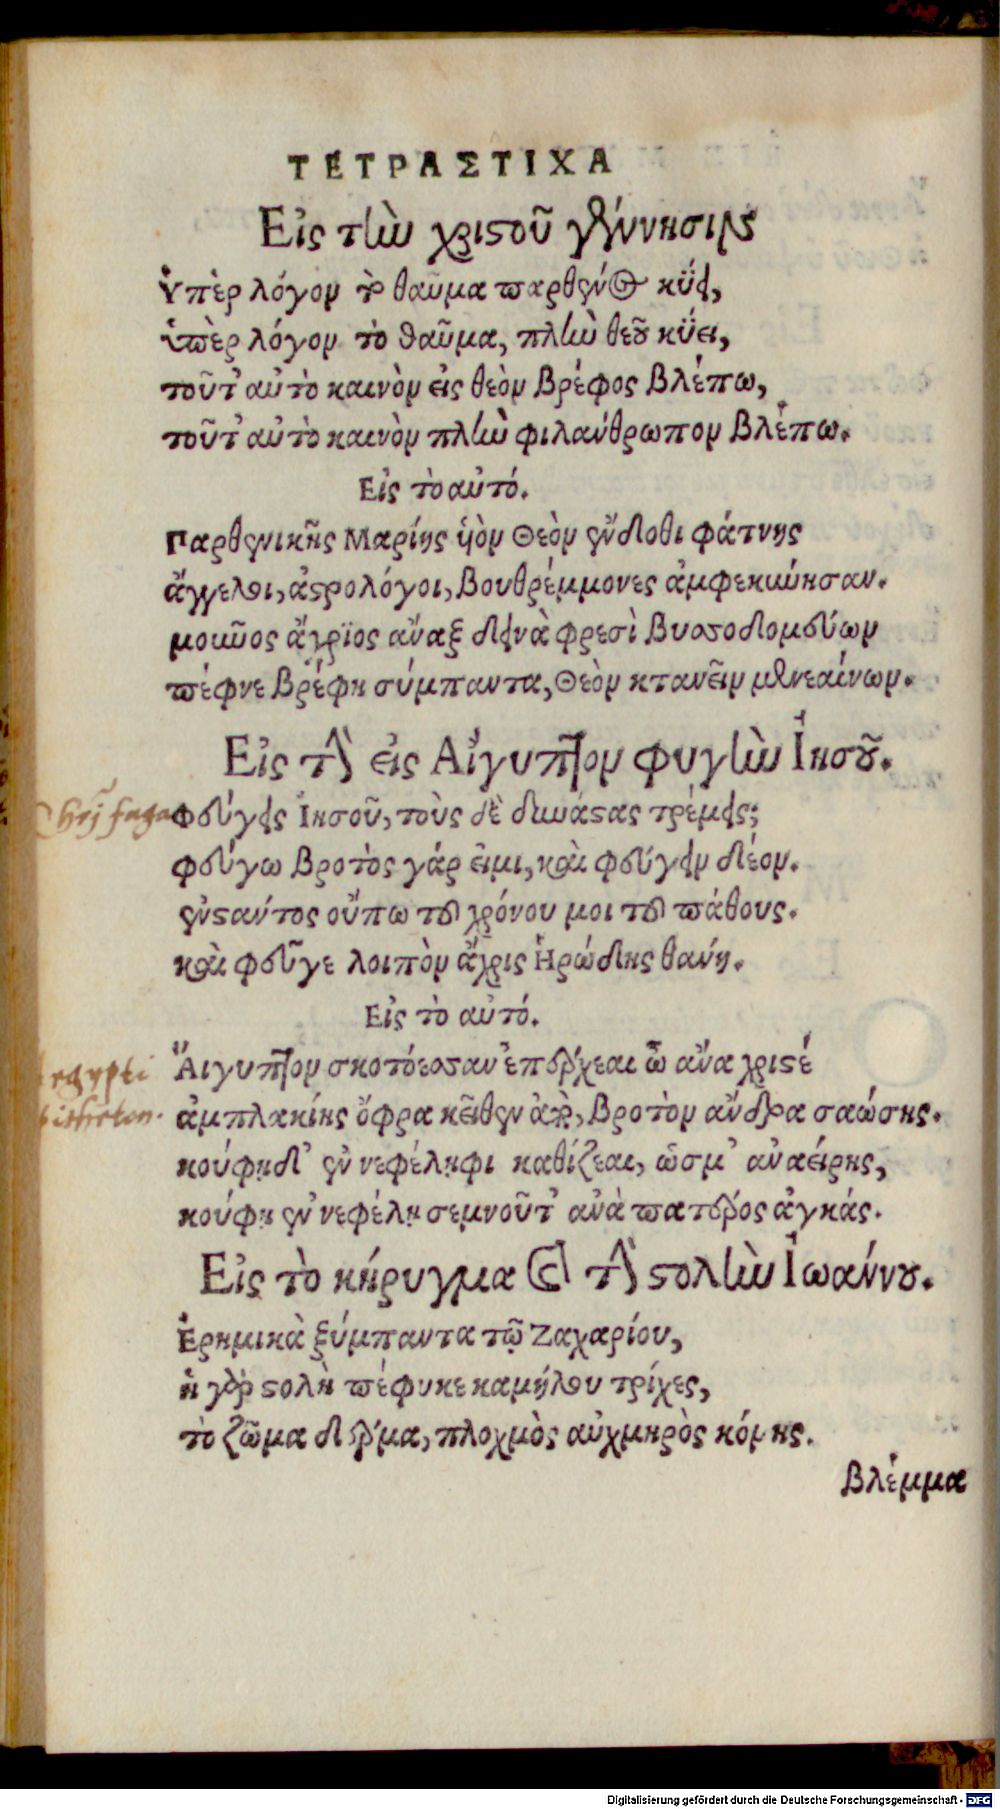 ΤΕΤΡΑΣΤΙΧΑ
Εἰς τὴν χριστοῦ γέννησιν
Ὑπὲρ λόγον τὸ θαῦμα παρθένος κύει,
ὑπὲρ λόγον τὸ θαῦμα, πλὴν θεοῦ κύει,
τοῦτ᾽ αὐτὸ καινὸν εἰς θεὸν βρέφος βλέπω,
τοῦτ᾽ αὐτὸ καινὸν πλὴν φιλάνθρωπον βλέπω.
Εἰς τὸ αὐτό.
Παρθενικῆς Μαρίης ὑὸν Θεὸν ἔνδοθι φάτνης
ἄγγελοι, ἀστρολόγοι, βουθρέμμονες ἀμφεκύνησαν.
μοῦνος ἄγριος ἄναξ δεινὰ φρεσὶ βυσσοδομεύων
πέφνε βρέφη σύμπαντα, Θεὸν κτανεῖν μενεαίνων.
Εἰς τὴν εἰς Αἴγυπτον φυγὴν Ἰησοῦ.
Chrj fuga
φεύγεις Ἰησοῦ, τοὺς δὲ δυνάστας τρέμεις;
φεύγω βροτὸς γάρ εἰμι, καὶ φεύγειν δέον.
ἐνστάντος οὔπω τοῦ χρόνου μοι τοῦ πάθους.
καὶ φεῦγε λοιπὸν ἄχρις Ἡρώδης θανῃ.
Εἰς τὸ αὐτό.
egypti
Αἴγυπτον σκοτόεσσαν ἐπέρχεαι ὦ ἄνα χριστέ
ἀμπλακίης ὄφρα κεῖθεν ἀπὸ, βροτὸν ἄνδρα σαώσης.
κούφῃ δ᾽ ἐν νεφέληφι καθίζεαι, ὥς μ᾽ ἀναείρης,
κούφῃ ἐν νεφέλῃ σεμνοῦτ᾽ ἀνὰ πατέρος ἀγκάς.
Εἰς τὸ κήρυγμα καὶ τὴν στολὴν Ἰωάννου.
Ἐρημικὰ ξύμπαντα τῷ Ζαχαρίου,
ἡ γὰρ στολὴ πέφυκε καμήλου τρίχες,
τὸ ζῶμα δέρμα, πλοχμὸς αὐχμηρὸς κόμης.
βλέμμα
Digitalisierung gefördert durch die Deutsche Forschungsgemeinschaft - DFG